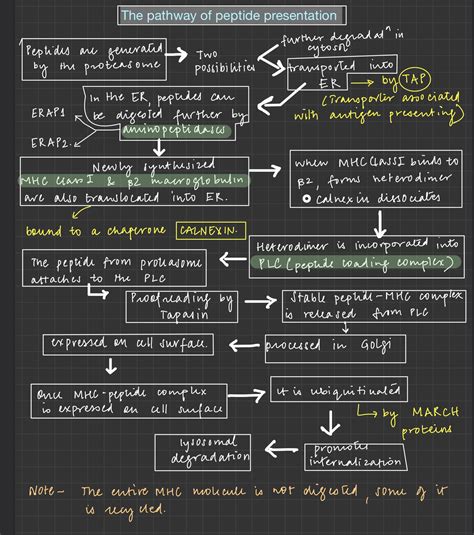 The pathway of peptide presentation
Peptides are generated
by the proteasome
Two
possibilities
further degradatn in
cytosol
transported into
ER
by TAP
(Transporter associated
with antigen presenting)
In the ER, peptides can
be digested further by
aminopeptidases
ERAP1
ERAP2.
Newly synthesized
MHC class I & β2 macroglobulin
are also translocated into ER.
when MHC CLASS I binds to
β2, forms heterodimer
calnexin dissociates
bound to a chaperone CALNEXIN.
Heterodimer is incorporated into
PLC (peptide loading complex)
The peptide from proteasome
attaches to the PLC
Proofreading by
Tapasin
Stable peptide-MHC complex
is released from PLC
expressed on cell surface.
processed in Golgi
Once MHC-peptide complex
is expressed on cell surface
it is ubiquitinated
by MARCH
proteins
lysosomal
degradation
promotes
internalization
Note - The entire MHC molecule is not digested, some of it
is recycled.